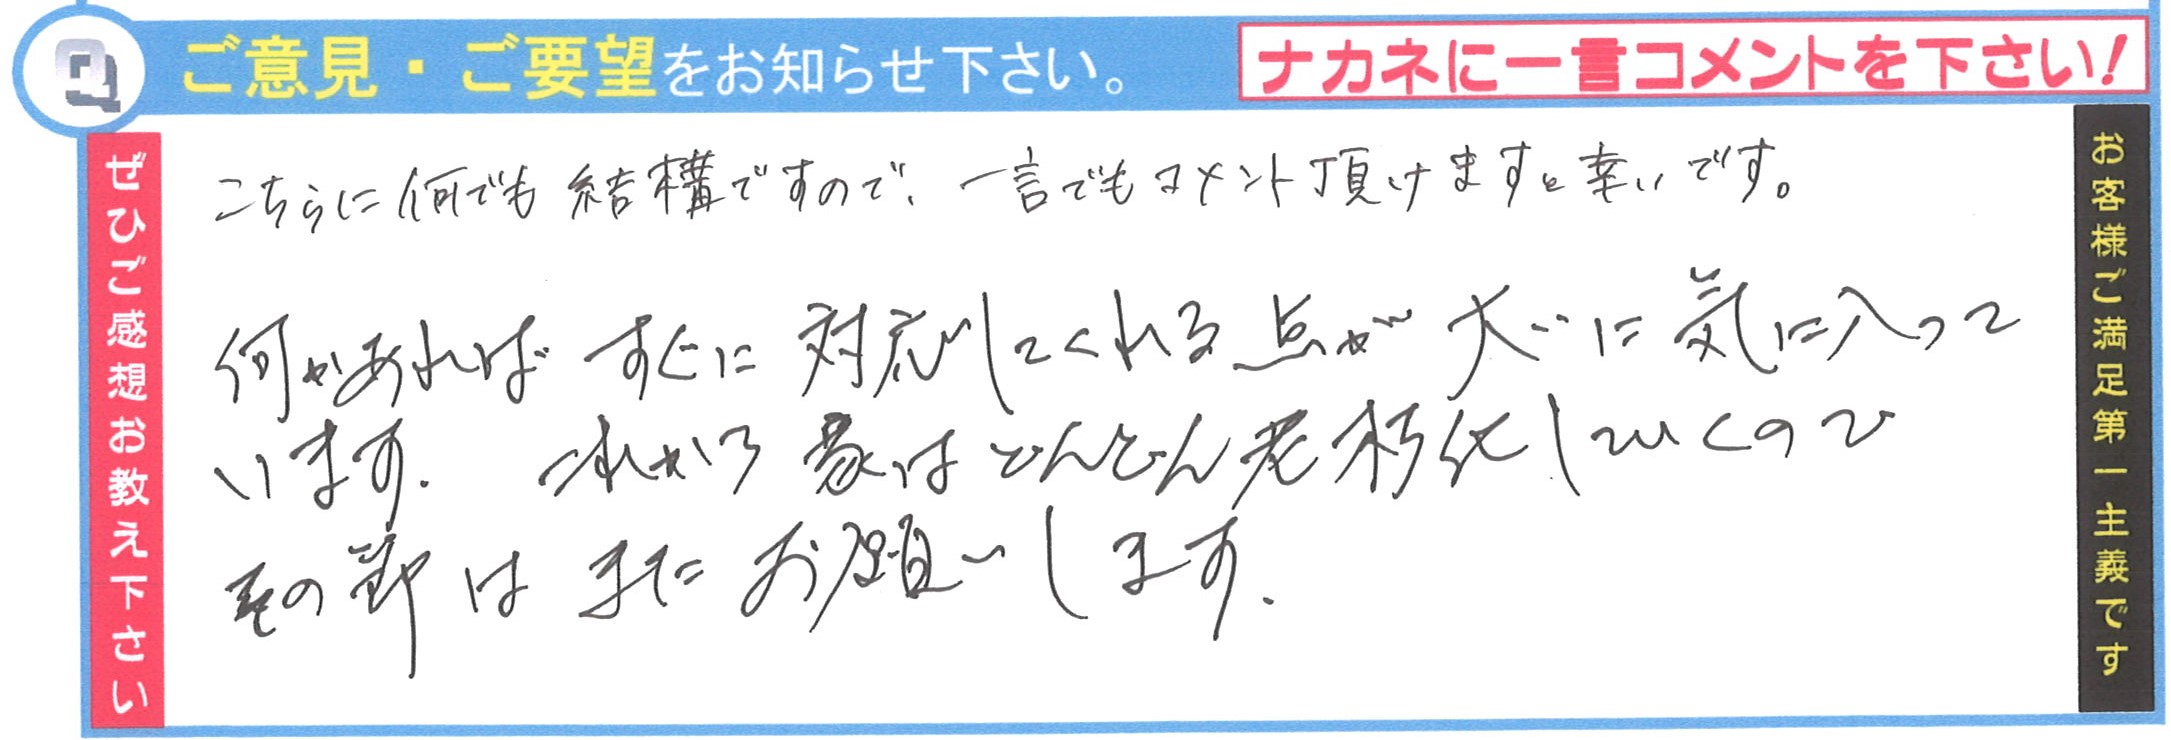 Q ご意見・ご要望をお知らせ下さい。
ナカネに一言コメントを下さい!
ぜひご感想お教え下さい
こちらに何でも結構ですので、一言でもコメント頂けますと幸いです。
何かあれば すぐに 対応してくれる点が 大いに 気に入って
います. これから 家は どんどん老朽化していくので
その節は また お願いします.
お客様ご満足第一主義です